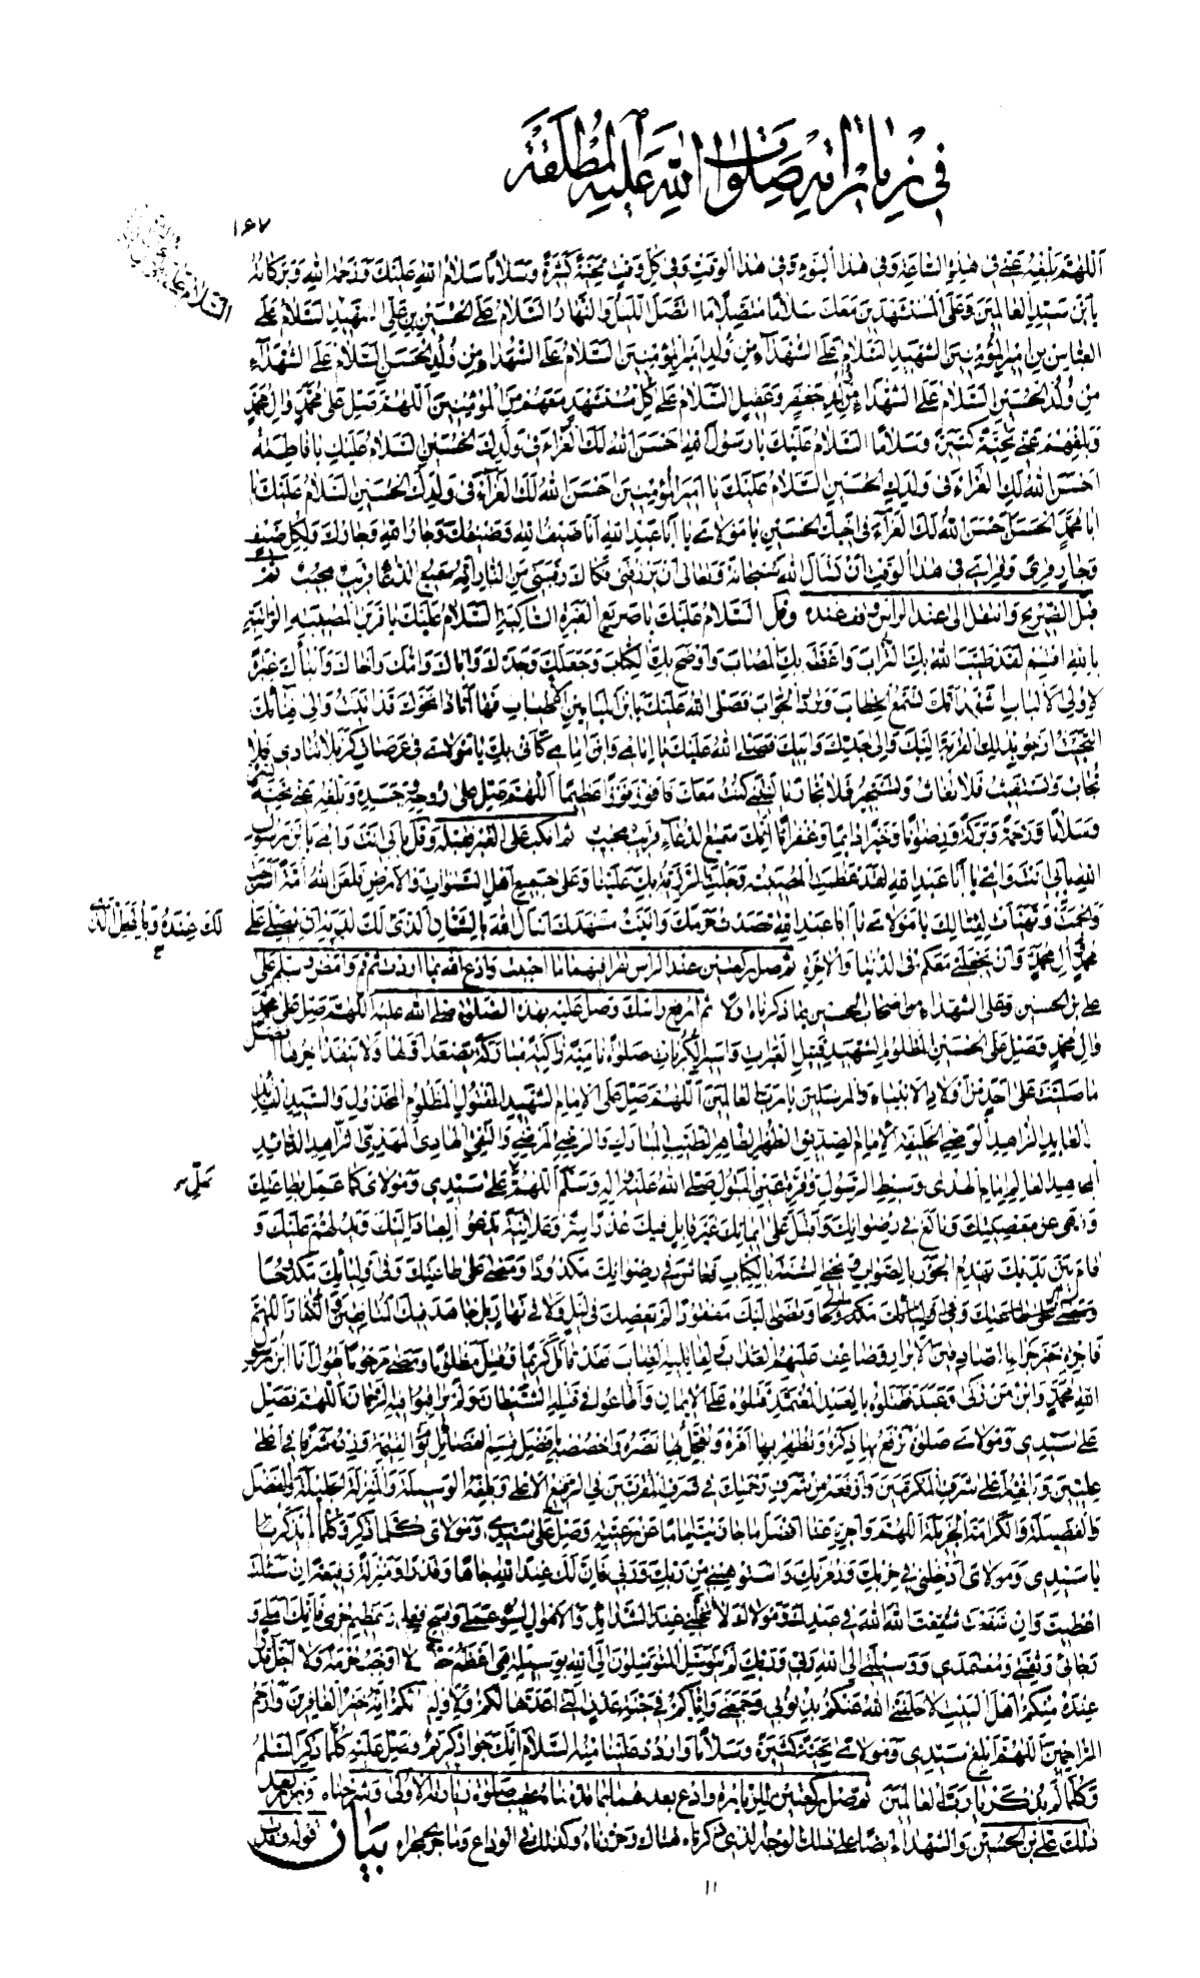 في زياراته صلوات الله عليه المطلقة
١٦٧
اللهم بلغه عني في هذه الساعة وفي هذا اليوم وفي هذا الوقت وفي كل وقت تحية كثيرة وسلاما سلام الله عليك ورحمة الله وبركاته
يا بن سيد العالمين وعلى المستشهدين معك سلاما متصلا ما اتصل الليل والنهار السلام على الحسين بن علي الشهيد السلام على
العباس بن امير المؤمنين الشهيد السلام على الشهداء من ولد امير المؤمنين السلام على الشهداء من ولد الحسن السلام على الشهداء
من ولد الحسين السلام على الشهداء من ولد جعفر وعقيل السلام على كل مستشهد معهم من المؤمنين اللهم صل على محمد وال محمد
وبلغهم عني تحية كثيرة وسلاما السلام عليك يا رسول الله احسن الله لك العزاء في ولدك الحسين السلام عليك يا فاطمة
احسن الله لك العزاء في ولدك الحسين السلام عليك يا امير المؤمنين احسن الله لك العزاء في ولدك الحسين السلام عليك يا
ابا محمد الحسن احسن الله لك العزاء في اخيك الحسين يا مولاي يا ابا عبد الله انا ضيف الله وضيفك وجار الله وجارك ولكل ضيف
وجار قرى وقراي في هذا الوقت ان تسأل الله سبحانه وتعالى ان يرزقني فكاك رقبتي من النار انه سميع الدعاء قريب مجيب ثم
قبل الضريح وانتقل الى عند الراس وقف عنده وقل السلام عليك يا صريع العبرة الساكبة السلام عليك يا قرين المصيبة الراتبة
بالله اقسم لقد طيب الله بك التراب واعظم بك المصاب واوضح بك الكتاب وجعلك وجدك واباك وامك واخاك وابناءك عبرة
لاولي الالباب اشهد انك تسمع الخطاب وترد الجواب فصلى الله عليك يا بن الميامين الاطياب فها انا ذا نحوك قد اتيت والى فنائك
التجيت ارجو بذلك القربة اليك والى جدك وابيك فصلى الله عليك يا امامي وابن امامي كاني بك يا مولاي في عرصات كربلا تنادي فلا
تجاب وتستغيث فلا تغاث وتستجير فلا تجار يا ليتني كنت معك فافوز فوزا عظيما اللهم صل على روحه وجسده وبلغه عني تحية
وسلاما ورحمة وبركة ورضوانا وخيرا دائما وغفرانا انك سميع الدعاء قريب مجيب ثم انكب على القبر فقبله وقل بابي انت وامي يا بن رسول
الله بابي انت وامي يا ابا عبد الله لقد عظمت المصيبة وجلت الرزية بك علينا وعلى جميع اهل السموات والارض فلعن الله امة اسرجت
والجمت وتهيات لقتالك يا مولاي يا ابا عبد الله قصدت حرمك واتيت مشهدك اسال الله بالشان الذي لك لديه ان يصلي على
لك عنده وبالمحل الذي
محمد وال محمد وان يجعلني معكم في الدنيا والاخرة ثم صل ركعتين عند الراس تقرا فيهما ما احببت وادع الله بما اردت ثم قم وامض وسلم على
علي بن الحسين وعلى الشهداء من اصحاب الحسين بما ذكرناه اولا ثم ارفع راسك وصل عليه بهذه الصلوة صلى الله عليه اللهم صل على محمد
وال محمد وصل على الحسين المظلوم الشهيد قتيل العبرات واسير الكربات صلوة نامية زاكية مباركة يصعد اولها ولا ينفد اخرها افضل
ما صليت على احد من اولاد الانبياء والمرسلين يا رب العالمين اللهم صل على الامام الشهيد المقتول المظلوم المخذول والسيد القائد
العابد الزاهد الوصي الخليفة الامام الصديق الطهر الطاهر الطيب المبارك والرضي المرضي والتقي الهادي المهدي الزاهد الذائد
المجاهد العالم امام الهدى وسبط الرسول وقرة عين البتول صلى الله عليه واله وسلم اللهم صل على سيدي ومولاي كما عمل بطاعتك
ونهى عن معصيتك وبالغ في رضوانك واقبل على ايمانك غير قابل فيك عذرا سرا وعلانية يدعو العباد اليك ويدلهم عليك و
قام بين يديك يهدم الجور بالصواب ويحيي السنة بالكتاب فعاش في رضوانك مكدودا ومضى على طاعتك وفي اوليائك مكدوحا
وقضى اليك مفقودا لم يعصك في ليل ولا في نهار بل جاهد فيك المنافقين والكفار اللهم
فاجزه خير جزاء الصادقين الابرار وضاعف عليهم العذاب ولقاتليه العقاب فقد قاتل كريما وقتل مظلوما ومضى مرحوما يقول انا ابن رسول
الله محمد وابن من زكى وعبد فقتلوه بالعمد المعتمد قتلوه على الايمان واطاعوا في قتله الشيطان ولم يراقبوا فيه الرحمن اللهم فصل
على سيدي ومولاي صلوة ترفع بها ذكره وتظهر بها امره وتعجل بها نصره واخصصه بافضل قسم الفضائل يوم القيمة وزده شرفا في اعلى
عليين وبلغه اعلى شرف المكرمين وارفعه من شرف رحمتك في شرف المقربين في الرفيع الاعلى وبلغه الوسيلة والمنزلة الجليلة والفضل
والفضيلة والكرامة الجزيلة اللهم واجزه عنا افضل ما جازيت اماما عن رعيته وصل على سيدي ومولاي كلما ذكر وكلما لم يذكر يا
يا سيدي ومولاي ادخلني في حزبك وزمرتك واستوهبني من ربك وربي فان لك عند الله جاها وقدرا ومنزلة رفيعة ان سئلت
اعطيت وان شفعت شفعت الله الله في عبدك ومولاك لا تخلني عند الشدائد والاهوال لسوء عملي وقبيح فعلي وعظيم جرمي فانك املي و
رجائي وثقتي ومعتمدي ووسيلتي الى الله ربي وربك لم يتوسل المتوسلون الى الله بوسيلة هي اعظم حقا ولا اوجب حرمة ولا اجل قدرا
عنده منكم اهل البيت لا خلفني الله عنكم بذنوبي وجمعني واياكم في جنة عدن التي اعدها لكم ولاوليائكم انه خير الغافرين وارحم
الراحمين اللهم ابلغ سيدي ومولاي تحية كثيرة وسلاما واردد علينا منه السلام انك جواد كريم وصل عليه كلما ذكر السلام
وكلما لم يذكر يا رب العالمين ثم صل ركعتين للزيارة وادع بعدهما بما قدمنا عقيب صلوة زيارته الاولى وشرحناه وزر بعد
ذلك علي بن الحسين والشهداء ايضا على ذلك الوجه الذي ذكرناه هناك وشرحناه وكذلك في الوداع وما جرى مجراه بيان قوله وقد
١١